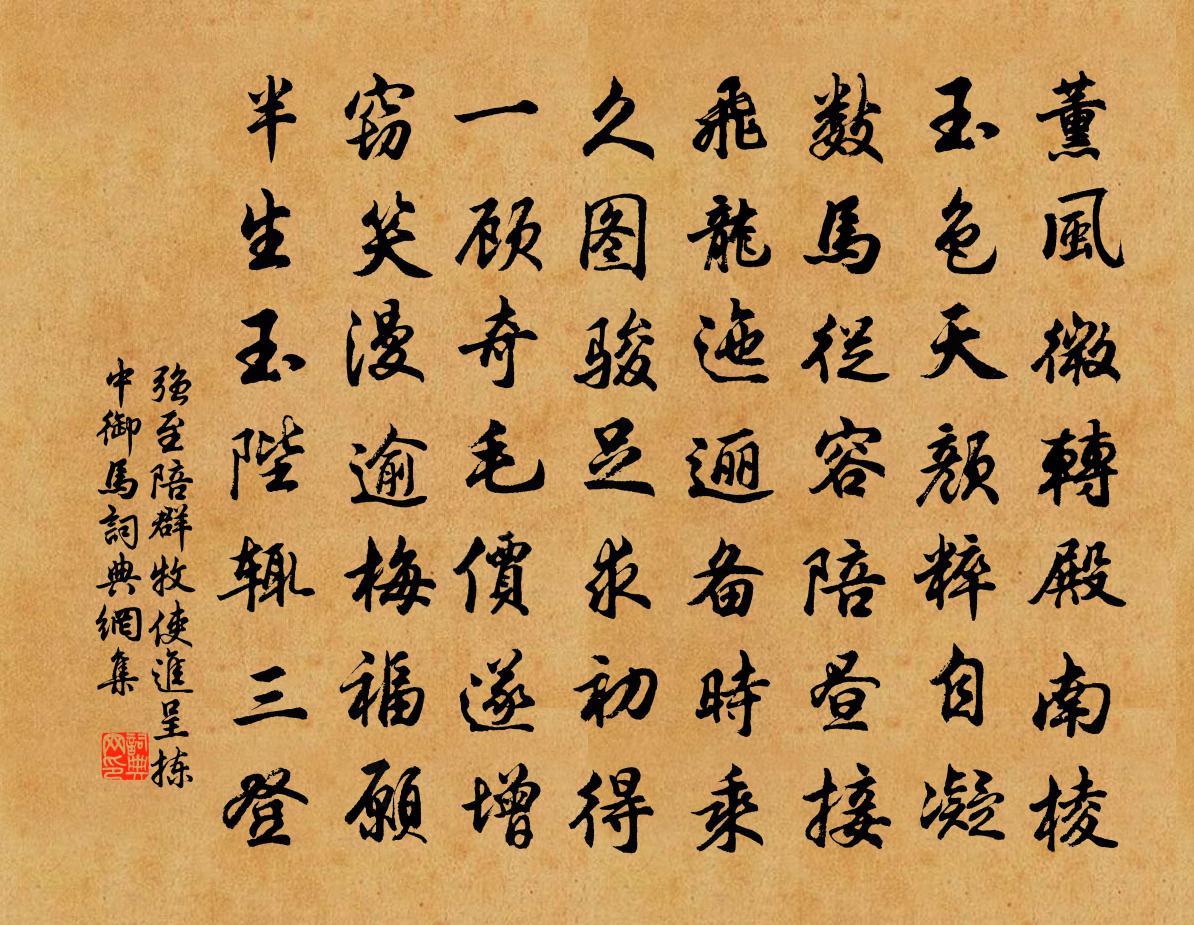 薰風微轉殿南棱
玉色天顏粹自凝
數馬從容陪晝接
飛龍迤逦备時乘
久图駿足求初得
一顾奇毛價遂增
窃笑漫逾梅福願
半生玉陛辄三登
強至陪群牧使進呈拣
中御馬詞典網集
詞典
网印